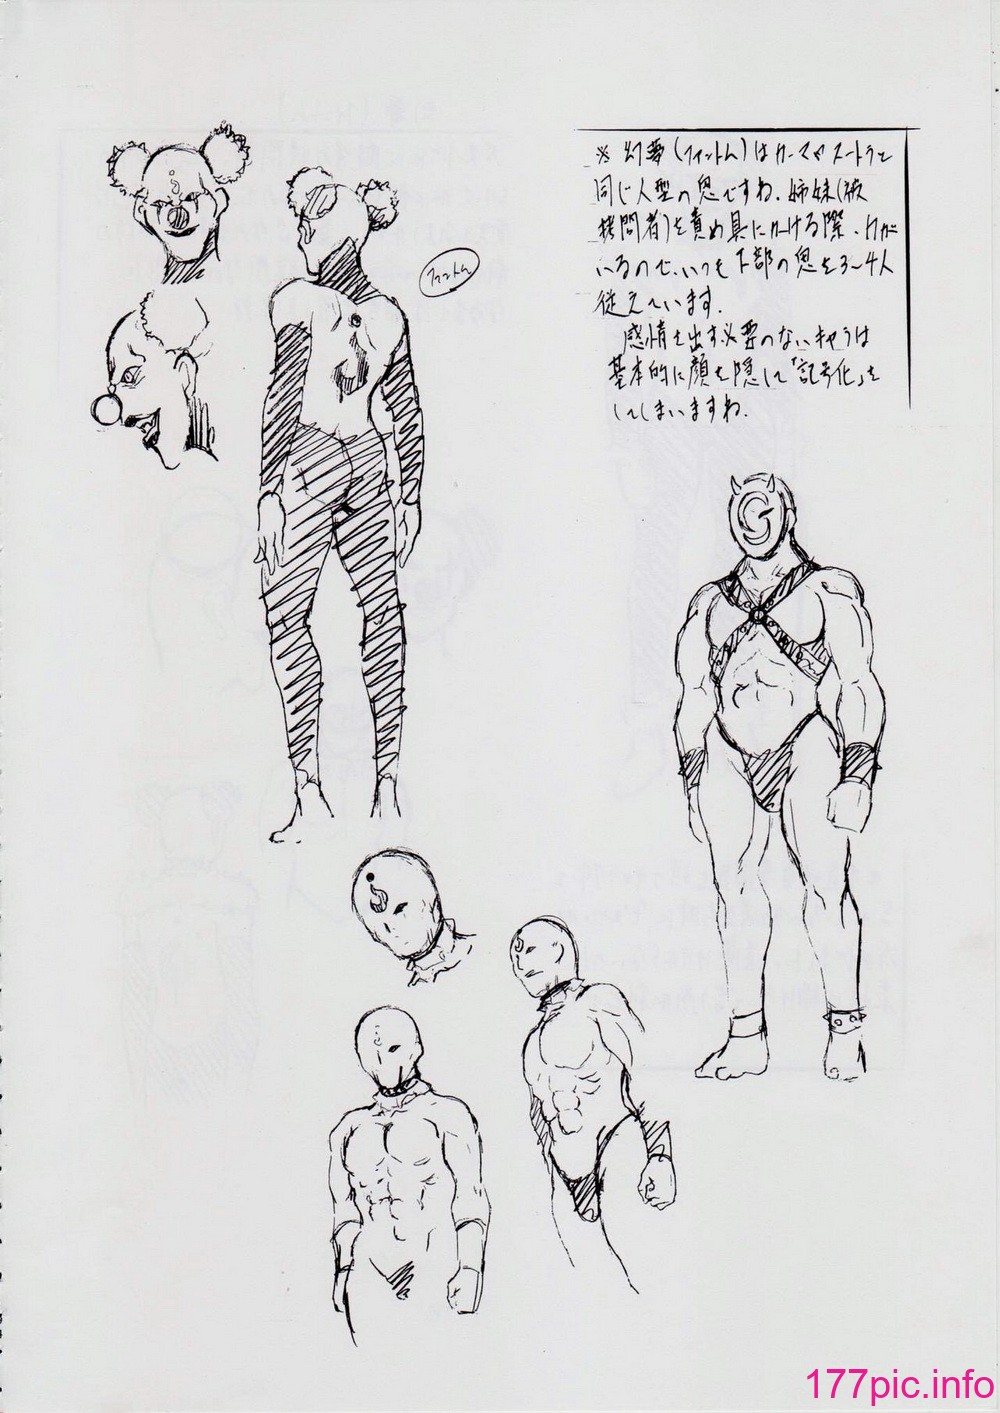 ※ 幻夢(フィットん)はカーマやスートラと
同じ人型の鬼ですね。姉妹(被
拷問者)を責め具にかける際、力が
いるので、いつも下部の鬼を3〜4人
従えています。
感情を出す必要のないキャラは
基本的に顔を隠して「記号化」を
してしまいますね。
177pic.info